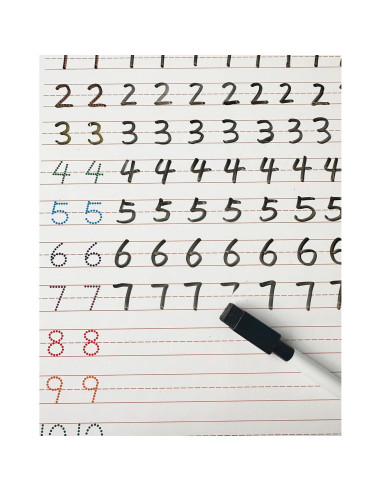 2 2 2 2 2 2 2 2 2
3 3 3 3 3 3 3 3 3
4 4 4 4 4 4 4 4 4
5 5 5 5 5 5 5 5 5
6 6 6 6 6 6 6 6 6
7 7 7 7 7 7 7 7 7
8 8
9 9
10 10